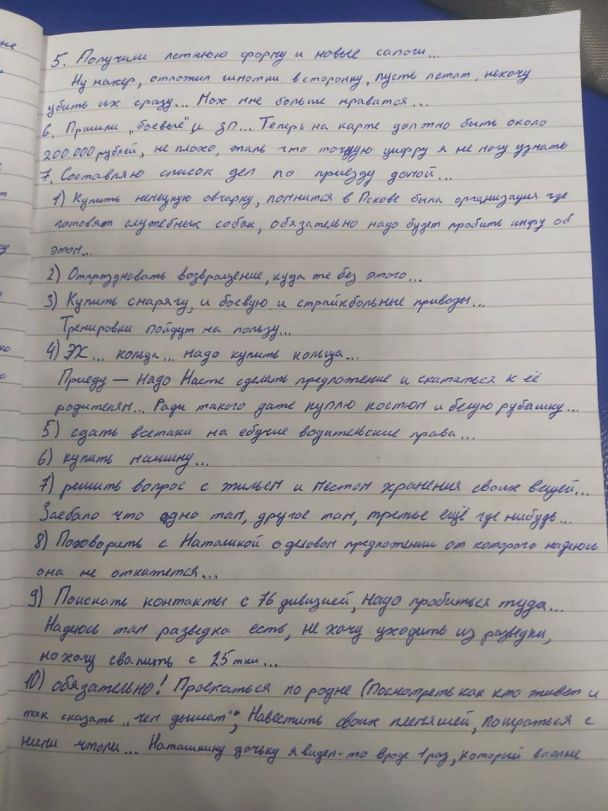 5. Получили летнюю форму и новые сапоги...
Ну нахер, отложил шмотки в сторонку, пусть летят. не хочу
убить их сразу... Мох мне больше нравится...
6. Пришли „боевые" и ЗП... Теперь на карте должно быть около
200.000 рублей, не плохо, жаль что точную цифру я не могу узнать
7. Составляю список дел по приезду домой...
1) Купить немецкую овчарку, помнится в Пскове была организация где
готовят служебных собак, обязательно надо будет пробить инфу об
этом...
2) Отпраздновать возвращение, куда же без этого...
3) Купить снарягу, и боевую и страйкбольные приводы...
Тренировки пойдут на пользу...
4) ЭХ... кольца... надо купить кольца...
Приеду — надо Насте сделать предложение и скататься к её
родителям... Ради такого даже куплю костюм и белую рубашку...
5) сдать всетаки на ебучие водительские права...
6) купить машину...
7) решить вопрос с жильем и местом хранения своих вещей...
Заебало что одно там, другое там, третье ещё где нибудь...
8) Поговорить с Наташкой о деловом предложении от которого надеюсь
она не откажется...
9) Поискать контакты с 76 дивизией, надо пробиться туда...
Надеюсь там разведка есть, не хочу уходить из разведки,
но хочу свалить с 25тки...
10) обязательно! Проехаться по родне (Посмотреть как кто живет и
так сказать „чем дышат", Навестить своих племяшей, поиграться с
ними чтоли... Наташкину дочьку я видел-то вроде 1 раз, который вполне